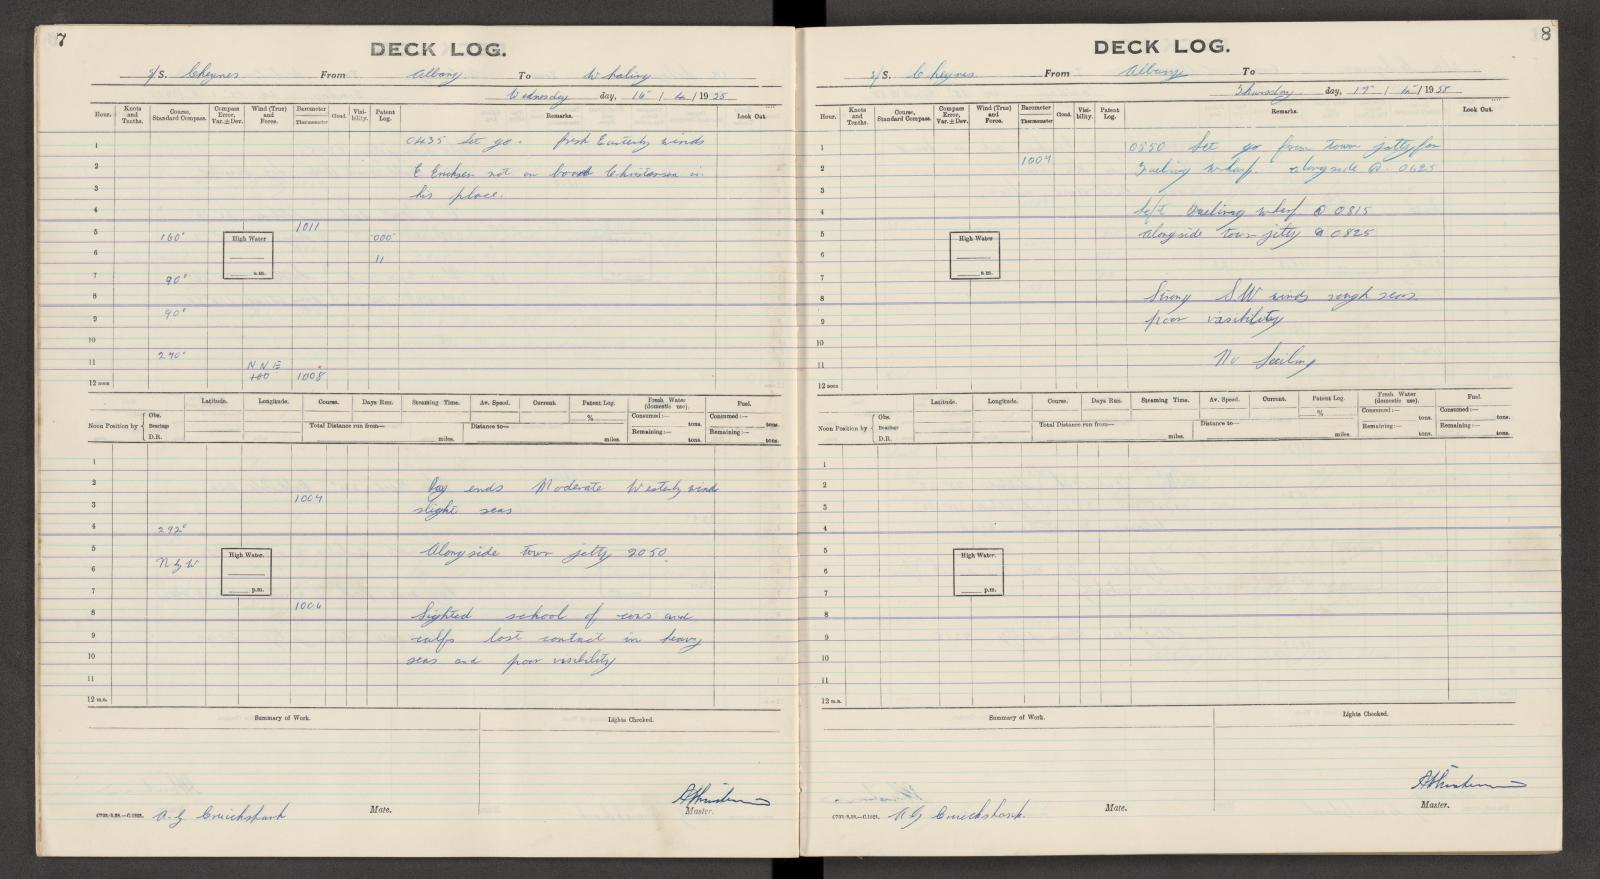 7
DECK LOG.
S/S. Cheynes From Albany To Whaling
Wednesday day, 16 / 4 / 19
Hour. Knots and Tenths. Course, Standard Compass. Compass Error, Var.±Dev. Wind (True) and Force. Barometer Thermometer Cloud. Visibility. Patent Log. Remarks. Look Out.
1 0435 Let go. fresh Easterly winds
2 E Ericksen not on board Christensen in
3 his place.
4
5 160° 1011 000
High Water
a.m.
6 11
7 90°
8
9 90°
10
11 270° N N E
12 noon 1008
Latitude. Longitude. Course. Days Run. Steaming Time. Av. Speed. Current. Patent Log. Fresh Water (domestic use). Fuel.
% Consumed:— tons. Consumed:— tons.
Noon Position by Obs. Bearings D.R.
Total Distance run from— miles. Distance to— miles. Remaining:— tons. Remaining:— tons.
1
2 Day ends Moderate Westerly wind
3 1004 slight seas
4 292°
5 Alongside town jetty 2050.
High Water.
p.m.
6 N by W
7
8 1006 Sighted school of cows and
9 calfs lost contact in heavy
10 seas and poor visibility
11
12 m.n.
Summary of Work. Lights Checked.
A. G Cruickshank Mate. Master.
8
DECK LOG.
S/S. Cheynes From Albany To
Thursday day, 17 / 4 / 1958
Hour. Knots and Tenths. Course, Standard Compass. Compass Error, Var.±Dev. Wind (True) and Force. Barometer Thermometer Cloud. Visibility. Patent Log. Remarks. Look Out.
1 0550 Let go from town jetty for
2 1004 Fueling wharf. alongside @ 0625
3
4 Left Fueling wharf @ 0815
5 alongside town jetty @ 0825
High Water
a.m.
6
7
8 Strong S.W winds rough seas
9 poor visibility
10
11 No Sailing
12 noon
Latitude. Longitude. Course. Days Run. Steaming Time. Av. Speed. Current. Patent Log. Fresh Water (domestic use). Fuel.
% Consumed:— tons. Consumed:— tons.
Noon Position by Obs. Bearings D.R.
Total Distance run from— miles. Distance to— miles. Remaining:— tons. Remaining:— tons.
1
2
3
4
5
High Water.
p.m.
6
7
8
9
10
11
12 m.n.
Summary of Work. Lights Checked.
A G Cruickshank. Mate. Master.